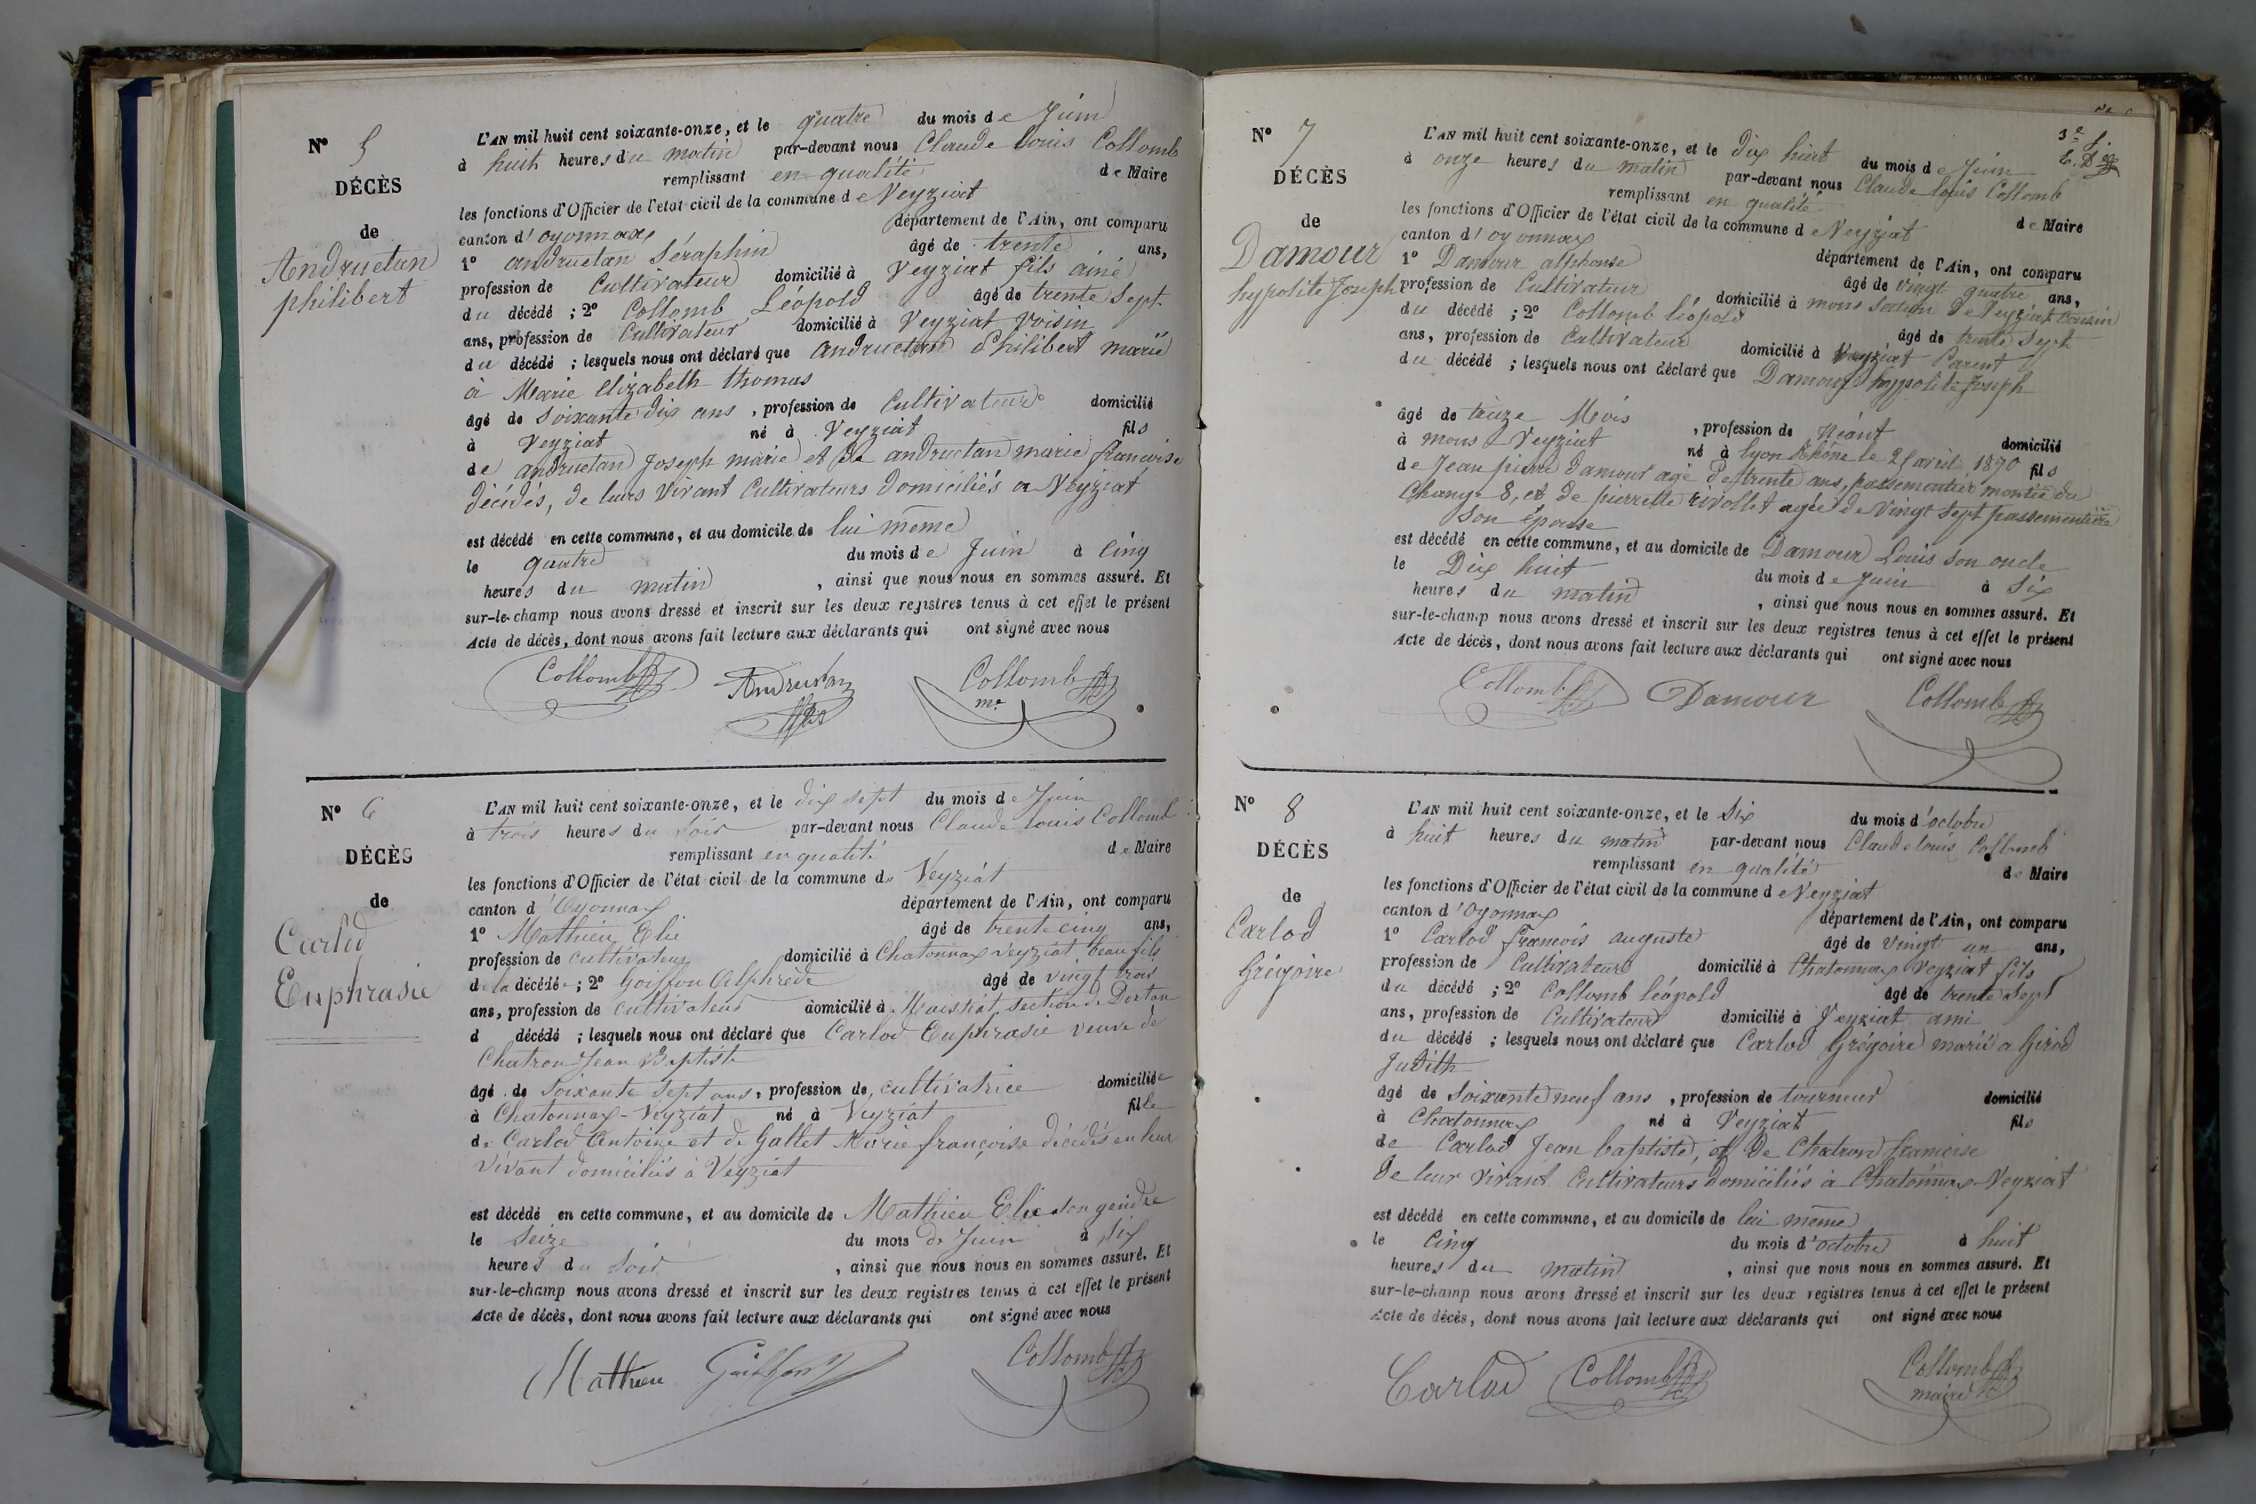 N° 5
DÉCÈS
de
Andruetan
philibert
L'AN mil huit cent soixante-onze, et le quatre du mois de Juin
à huit heures du matin par-devant nous Claude Louis Collomb
remplissant en qualité de Maire
les fonctions d'Officier de l'état civil de la commune de Veyziat
canton d'oyonnax département de l'Ain, ont comparu
1° andruetan Séraphin âgé de trente ans,
profession de Cultivateur domicilié à Veyziat fils ainé
du décédé ; 2° Collomb Léopold âgé de trente Sept
ans, profession de Cultivateur domicilié à Veyziat voisin
du décédé ; lesquels nous ont déclaré que andruetan Philibert marié
à Marie Elizabeth thomas
âgé de Soixante dix ans, profession de Cultivateur domicilié
à Veyziat né à Veyziat fils
de andruetan Joseph marie et de andruetan marie francoise
décédés, de leurs vivant Cultivateurs domiciliés a Veyziat
est décédé en cette commune, et au domicile de lui même
le quatre du mois de Juin à Cinq
heures du matin, ainsi que nous nous en sommes assuré. Et
sur-le-champ nous avons dressé et inscrit sur les deux registres tenus à cet effet le présent
Acte de décès, dont nous avons fait lecture aux déclarants qui ont signé avec nous
Collomb Andruetan Collomb
me
N° 6
DÉCÈS
de
Carlod
Euphrasie
L'AN mil huit cent soixante-onze, et le dix sept du mois de Juin
à trois heures du soir par-devant nous Claude Louis Collomb
remplissant en qualité de Maire
les fonctions d'Officier de l'état civil de la commune de Veyziat
canton d'Oyonnax département de l'Ain, ont comparu
1° Mathieu Elie âgé de trente cinq ans,
profession de cultivateur domicilié à Chatonnax veyziat, beau fils
de la décédée ; 2° Goiffon Alphrède âgé de vingt trois
ans, profession de cultivateur domicilié à Maissiat section de Dortan
d décédé ; lesquels nous ont déclaré que Carlod Euphrasie veuve de
Chatron Jean Baptiste
âgé de Soixante Sept ans, profession de cultivatrice domiciliée
à Chatonnax-Veyziat né à Veyziat fille
de Carlod Antoine et de Gallet Marie françoise décédés en leur
vivant domiciliés à Veyziat
est décédé en cette commune, et au domicile de Mathieu Elie son gendre
le Seize du mois de Juin à six
heures du soir, ainsi que nous nous en sommes assuré. Et
sur-le-champ nous avons dressé et inscrit sur les deux registres tenus à cet effet le présent
Acte de décès, dont nous avons fait lecture aux déclarants qui ont signé avec nous
Mathieu Goiffon Collomb
N° 7
DÉCÈS
de
Damour
hypolite Joseph
L'AN mil huit cent soixante-onze, et le dix huit du mois de Juin
à onze heures du matin par-devant nous Claude Louis Collomb
remplissant en qualité de Maire
les fonctions d'Officier de l'état civil de la commune de Veyziat
canton d'oyonnax département de l'Ain, ont comparu
1° Damour alphonse âgé de vingt quatre ans,
profession de Cultivateur domicilié à mons section de Veyziat cousin
du décédé ; 2° Collomb léopold âgé de trente Sept
ans, profession de Cultivateur domicilié à Veyziat Parent
du décédé ; lesquels nous ont déclaré que Damour hyppolite Joseph
âgé de treize Mois, profession de Néant domicilié
à mons Veyziat né à lyon Rhône le 25 avril 1870 fils
de Jean pierre damour agé de trente ans, passementier montée du
Change 8, et de pierrette rivollet agée de Vingt Sept passementière
Son épouse
est décédé en cette commune, et au domicile de Damour Louis son oncle
le Dix huit du mois de Juin à Six
heures du matin, ainsi que nous nous en sommes assuré. Et
sur-le-champ nous avons dressé et inscrit sur les deux registres tenus à cet effet le présent
Acte de décès, dont nous avons fait lecture aux déclarants qui ont signé avec nous
Collomb Damour Collomb
N° 8
DÉCÈS
de
Carlod
Grégoire
L'AN mil huit cent soixante-onze, et le Six du mois d'octobre
à huit heures du matin par-devant nous Claude louis Collomb
remplissant en qualité de Maire
les fonctions d'Officier de l'état civil de la commune de Veyziat
canton d'Oyonnax département de l'Ain, ont comparu
1° Carlod francois auguste âgé de vingt un ans,
profession de Cultivateur domicilié à Chatonnax Veyziat fils
du décédé ; 2° Collomb léopold âgé de trente Sept
ans, profession de Cultivateur domicilié à Veyziat ami
du décédé ; lesquels nous ont déclaré que Carlod Grégoire marié a Girod
Judith
âgé de Soixante neuf ans, profession de tourneur domicilié
à Chatonnax né à Veyziat fils
de Carlod Jean baptiste, et de Chatron francoise
de leur vivant Cultivateurs domiciliés à Chatonnax-Veyziat
est décédé en cette commune, et au domicile de lui même
le Cinq du mois d'octobre à huit
heures du matin, ainsi que nous nous en sommes assuré. Et
sur-le-champ nous avons dressé et inscrit sur les deux registres tenus à cet effet le présent
Acte de décès, dont nous avons fait lecture aux déclarants qui ont signé avec nous
Carlod Collomb Collomb
maire